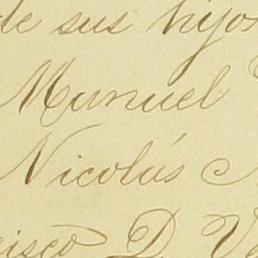 de sus hijos
Manuel
Nicolás
cisco D.